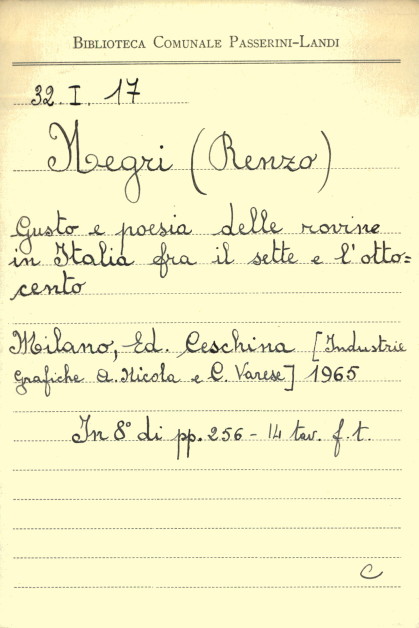 BIBLIOTECA COMUNALE PASSERINI-LANDI
32. I. 17
Negri (Renzo)
Gusto e poesia delle rovine
in Italia fra il sette e l'otto=
cento
Milano, Ed. Ceschina [Industrie
Grafiche A. Nicola e C. Varese] 1965
In 8° di pp. 256 - 14 tav. f. t.
C